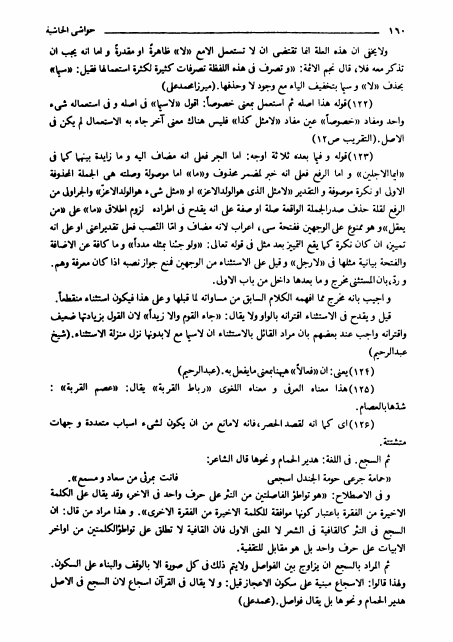 ١٦٠ حواشي الحاشية
ولايخفى ان هذه العلة انما تقتضى ان لا تستعمل الامع «لا» ظاهرة او مقدرة و اما انه يجب ان
تذكر معه فلا، قال نجم الائمة: «و تصرف فى هذه اللفظة تصرفات كثيرة لكثرة استعمالها فقيل: «سيما»
بحذف «لا» و سيما بتخفيف الياء مع وجود لا وحذفها. (ميرزامحمدعلى)
(١٢٢) قوله هذا اصله ثم استعمل بمعنى خصوصاً: اقول «لاسيما» فى اصله و فى استعماله شىء
واحد ومفاد «خصوصاً» عين مفاد «لامثل كذا» فليس هناك معنى آخر جاء به الاستعمال لم يكن فى
الاصل. (التقريب ص١٢)
(١٢٣) قوله و فيما بعده ثلاثة اوجه: اما الجر فعلى انه مضاف اليه و ما زايدة بينهما كما فى
«ايما الاجلين» و اما الرفع فعلى انه خبر لمضمر محذوف و«ما» اما موصولة وصلته هى الجملة المحذوفة
الاولى او نكرة موصوفة و التقدير «لامثل الذى هوالولدالاعز» او «مثل شىء هوالولدالاعز» والجراولى من
الرفع لقلة حذف صدرالجملة الواقعة صلة او صفة على انه يقدح فى اطراده لزوم اطلاق «ما» على «من
يعقل» و هو ممنوع على الوجهين ففتحة سى، اعراب لانه مضاف و امّا النّصب فعل تقديراعنى او على انه
تمييز، ان كان نكرة كما يقع التمييز بعد مثل فى قوله تعالى: «ولو جئنا بمثله مدداً» و ما كافة عن الاضافة
والفتحة بيانية مثلها فى «لارجل» و قيل على الاستثناء من الوجهين فمنع جواز نصبه اذا كان معرفة وهم.
و ردّ، بان المستثنى مخرج و ما بعدها داخل من باب الاولى.
و اجيب بانه مخرج مما افهمه الكلام السابق من مساواته لما قبلها و على هذا فيكون استثناء منقطعاً.
قيل و يقدح فى الاستثناء اقترانه بالواو ولا يقال: «جاء القوم والا زيداً» لان القول بزيادتها ضعيف
واقترانه واجب عند بعضهم بان مراد القائل بالاستثناء ان لاسيما مع لابدونها نزل منزلة الاستثناء. (شيخ
عبدالرحيم)
(١٢٤) يعنى: ان «فعالاً» هيهنا بمعنى ما يفعل به. (عبدالرحيم)
(١٢٥) هذا معناه العرفى و معناه اللغوى «رباط القربة» يقال: «عصم القربة» :
شدّها بالعصام.
(١٢٦) اى كما انه لقصد الحصر، فانه لامانع من ان يكون لشىء اسباب متعددة و جهات
متشتتة.
ثم السجع. فى اللغة: هدير الحمام و نحوها قال الشاعر:
«حمامة جرعى حومة الجندل اسجعى فانت بمرئى من سعاد و مسمع».
و فى الاصطلاح: «هو تواطؤ الفاصلتين من النثر على حرف واحد فى الاخر، وقد يقال على الكلمة
الاخيرة من الفقرة باعتبار كونها موافقة للكلمة الاخيرة من الفقرة الاخرى». و هذا مراد من قال: ان
السجع فى النثر كالقافية فى الشعر لا المعنى الاول فان القافية لا تطلق على تواطؤالكلمتين من اواخر
الابيات على حرف واحد بل هو مقابل للتقفية.
ثم المراد بالسجع ان يزاوج بين الفواصل ولايتم ذلك فى كل صورة الا بالوقف والبناء على السكون.
ولهذا قالوا: الاسجاع مبنية على سكون الاعجاز قيل: و لا يقال فى القرآن اسجاع لان السجع فى الاصل
هدير الحمام و نحوها بل يقال فواصل. (محمدعلى)